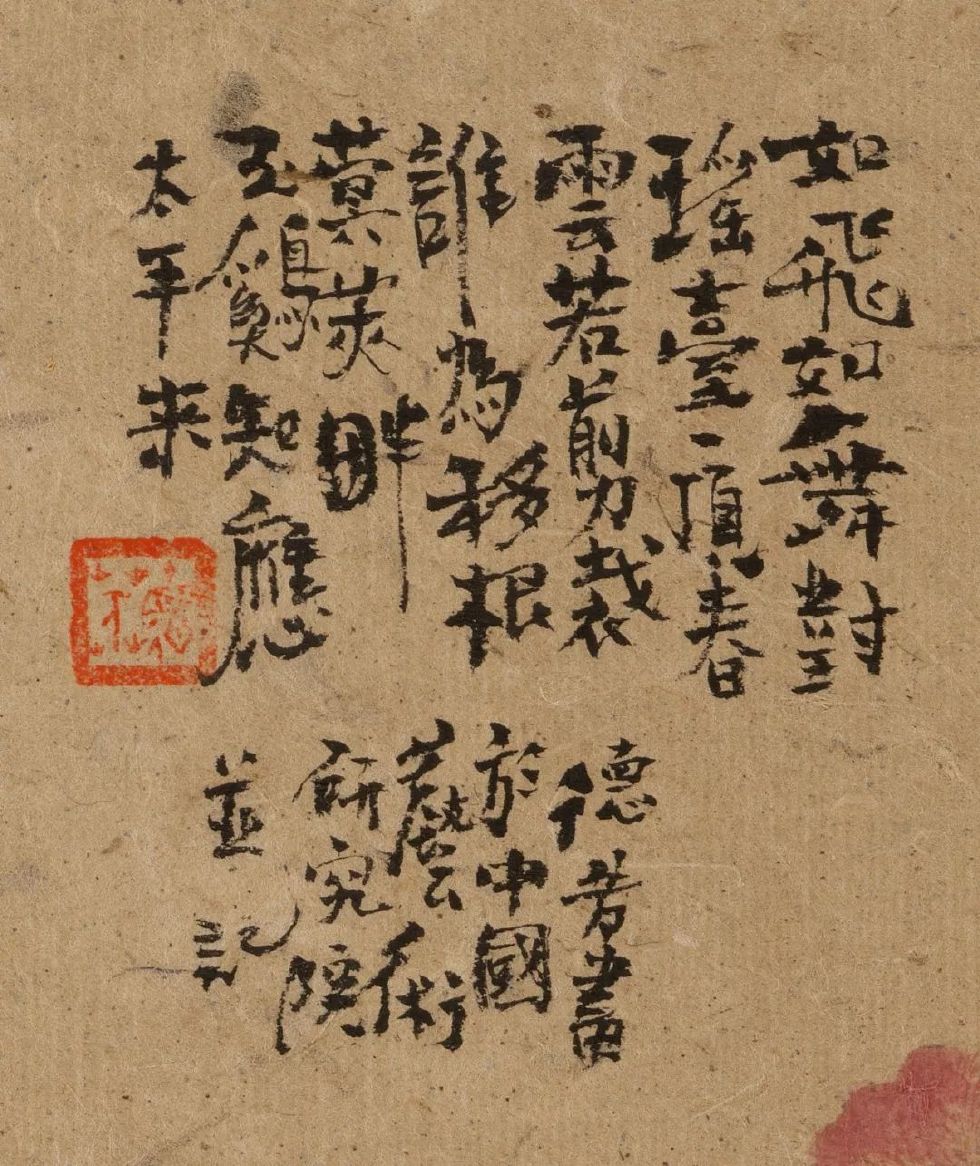 如飛如舞對
瑤臺一頂春
雲若剪裁
誰為移根
蓂莢畔
玉鷄知應
太平来
德芳畫
於中國
藝術
研究院
並記